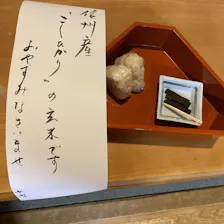 信州産
"こしひかり"の玄米です
おやすみなさいませ